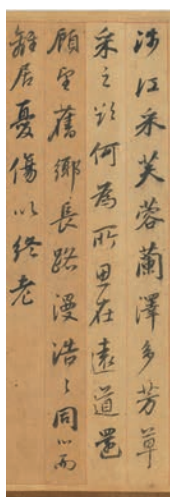 涉江采芙蓉蘭澤多芳草
采之欲何為所思在遠道還
顧望舊鄉長路漫浩〻同心而
離居憂傷以終老